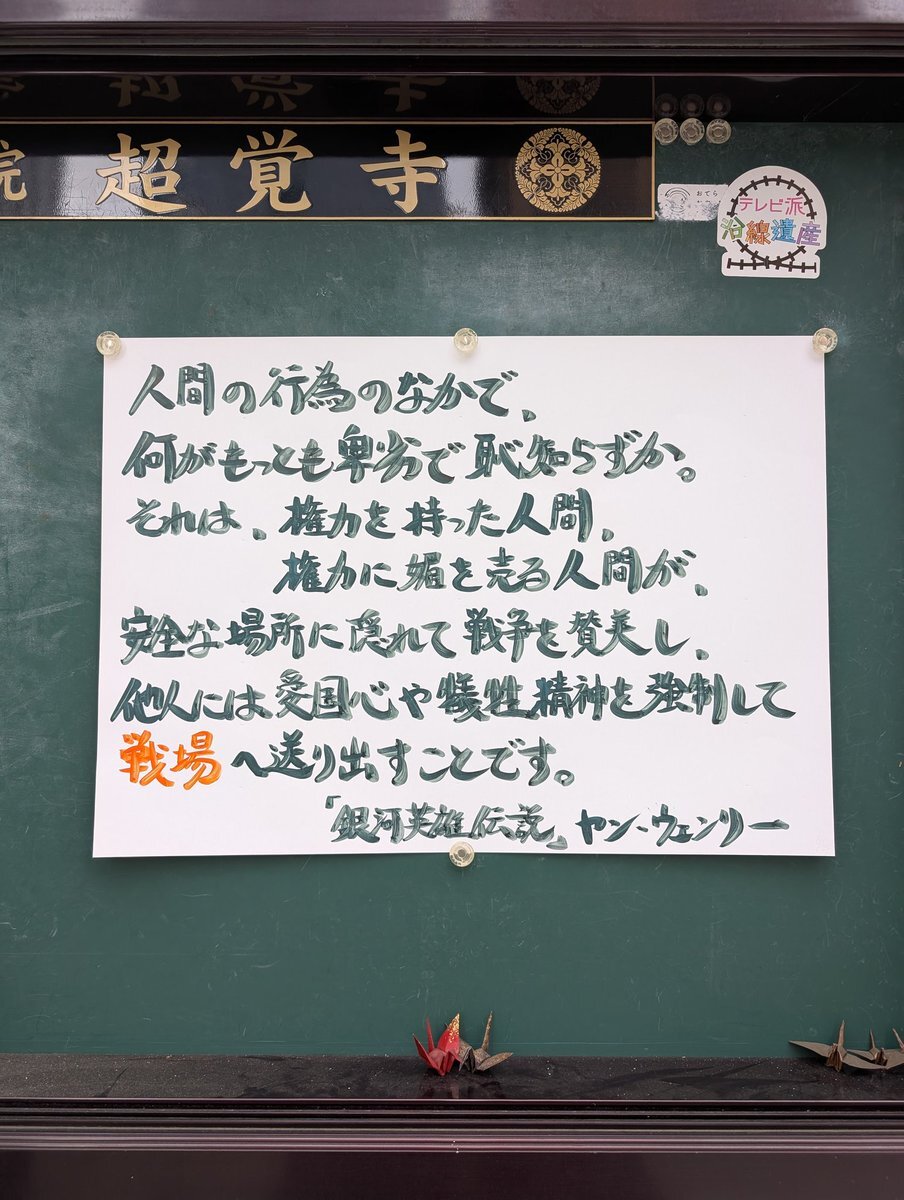 院 超覚寺
おてら
テレビ派
沿線遺産
人間の行為のなかで、
何がもっとも卑劣で恥知らずか。
それは、権力を持った人間、
権力に媚を売る人間が、
安全な場所に隠れて戦争を賛美し、
他人には愛国心や犠牲精神を強制して
戦場へ送り出すことです。
「銀河英雄伝説」ヤン・ウェンリー